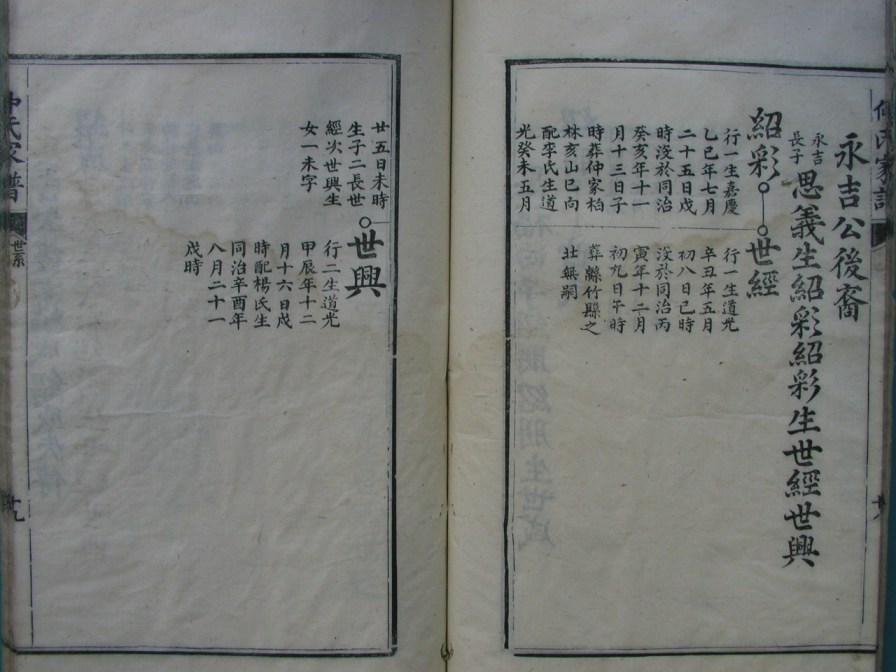 永吉公後裔
永吉
長子
思義生紹彩紹彩生世經世興
紹彩
行一生嘉慶
乙巳年七月
二十五日戌
時沒於同治
癸亥年十一
月十三日子
時葬仲家柏
林亥山巳向
配李氏生道
光癸未五月
世經
行一生道光
辛丑年五月
初八日巳時
沒於同治丙
寅年十二月
初九日午時
葬緜竹縣之
北無嗣
廿五日未時
生子二長世
經次世興生
女一未字
世興
行二生道光
甲辰年十二
月十六日戌
時配楊氏生
同治辛酉年
八月二十一
戌時
氏家譜
世系
十九